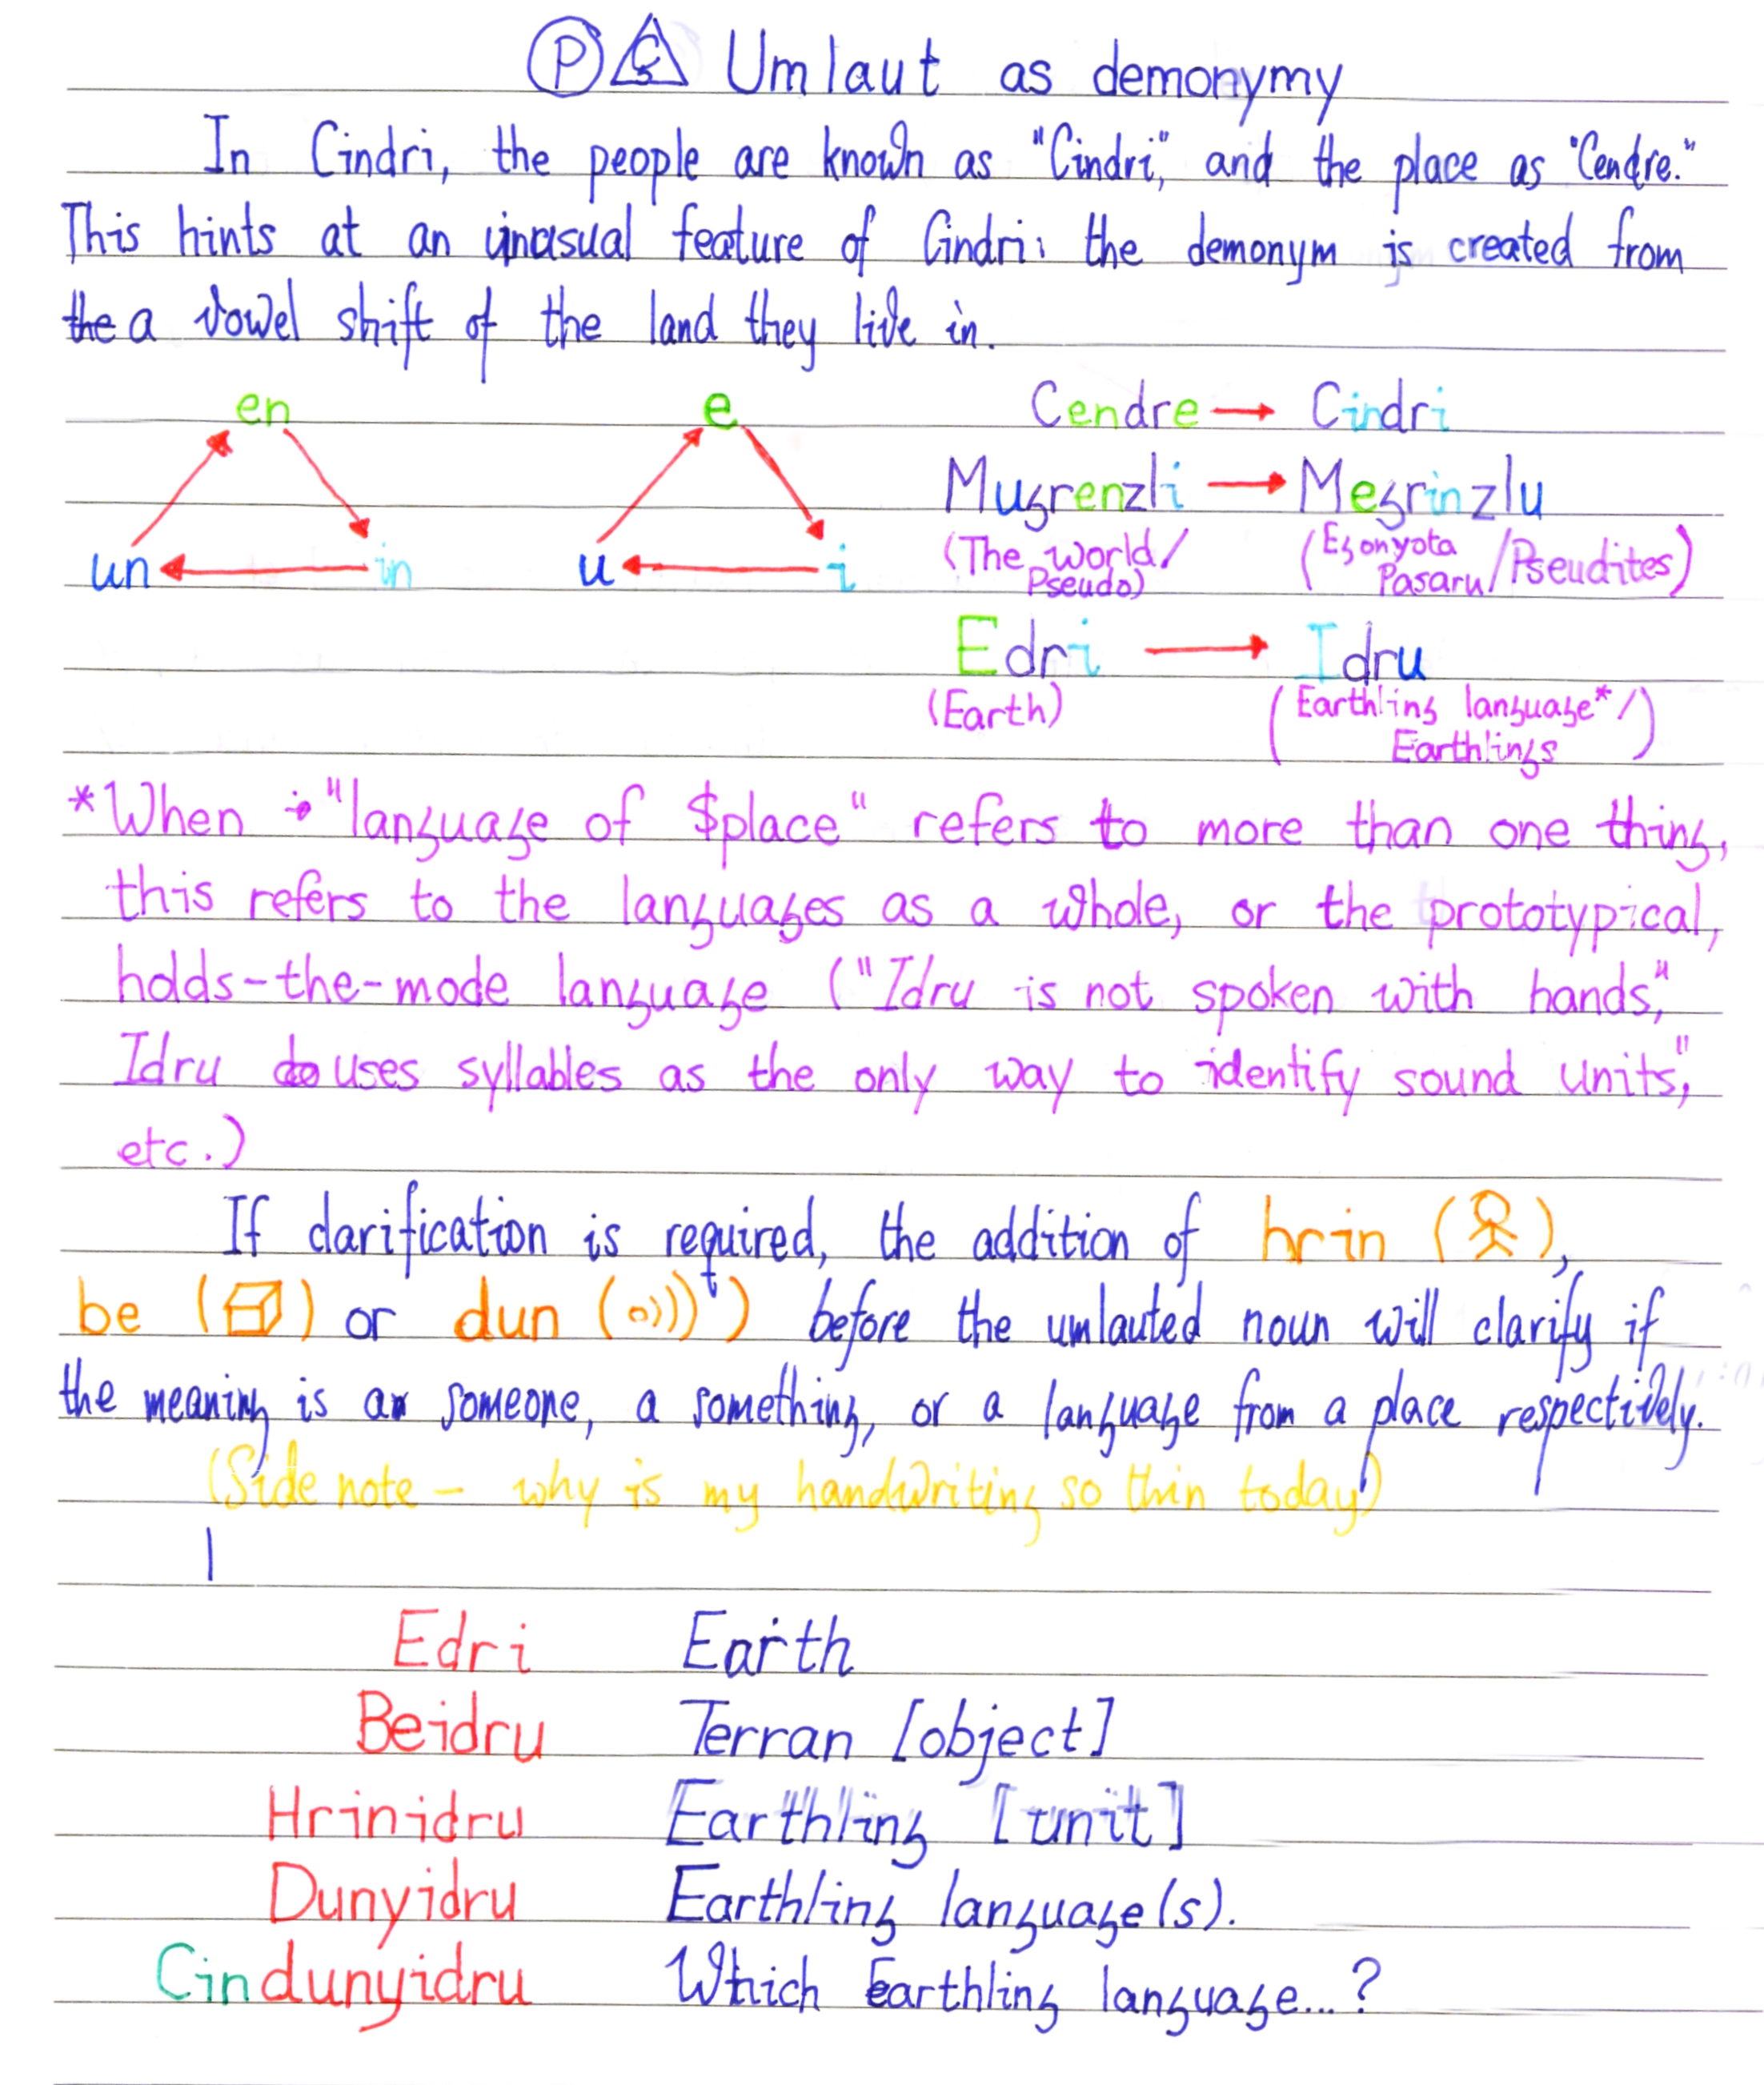 P G Umlaut as demonymy
In Cindri, the people are known as "Cindri," and the place as "Cendre."
This hints at an unusual feature of Cindri: the demonym is created from
the a vowel shift of the land they live in.
en e Cendre → Cindri
Mugrenzli → Megrinzlu
un in u i (The world/ Pseudo) (Egonyota Pasaru/Pseudites)
Edri → Idru
(Earth) (Earthling language*/ Earthlings)
*When "language of $place" refers to more than one thing,
this refers to the languages as a whole, or the prototypical,
holds-the-mode language ("Idru is not spoken with hands,"
Idru do uses syllables as the only way to identify sound units,"
etc.)
If clarification is required, the addition of hrin ( ),
be ( ) or dun ( ) before the umlauted noun will clarify if
the meaning is an someone, a something, or a language from a place respectively.
(Side note – why is my handwriting so thin today)
Edri Earth
Beidru Terran [object]
Hrinidru Earthling [unit]
Dunyidru Earthling language(s).
Cindunyidru Which Earthling language...?